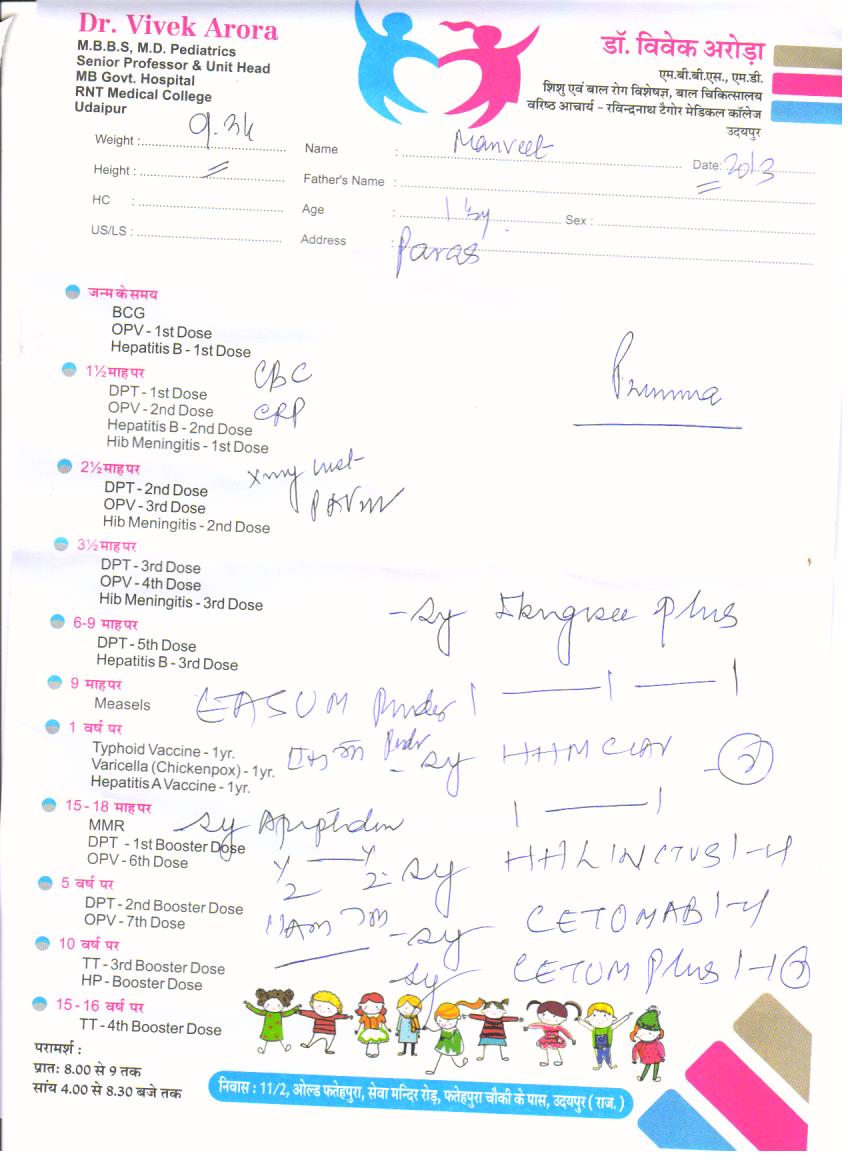 Dr. Vivek Arora
M.B.B.S, M.D. Pediatrics
Senior Professor & Unit Head
MB Govt. Hospital
RNT Medical College
Udaipur
डॉ. विवेक अरोड़ा
एम.बी.बी.एस., एम.डी.
शिशु एवं बाल रोग विशेषज्ञ, बाल चिकित्सालय
वरिष्ठ आचार्य - रविन्द्रनाथ टैगोर मेडिकल कॉलेज
उदयपुर
Weight : 9.3k Name : Manveet Date: 20/3
Height : Father's Name :
HC : Age : 1 Sex :
US/LS : Address : Paras
जन्म के समय
BCG
OPV - 1st Dose
Hepatitis B - 1st Dose
1½ माह पर
DPT - 1st Dose CBC
OPV - 2nd Dose CRP
Hepatitis B - 2nd Dose
Hib Meningitis - 1st Dose
2½ माह पर
DPT - 2nd Dose
OPV - 3rd Dose
Hib Meningitis - 2nd Dose
3½ माह पर
DPT - 3rd Dose
OPV - 4th Dose
Hib Meningitis - 3rd Dose
- Sy Plus
6-9 माह पर
DPT - 5th Dose
Hepatitis B - 3rd Dose
9 माह पर
Measels
1 वर्ष पर
Typhoid Vaccine - 1yr.
Varicella (Chickenpox) - 1yr. - Sy HHMCLAV
Hepatitis A Vaccine - 1yr.
15 - 18 माह पर
MMR Sy
DPT - 1st Booster Dose
OPV - 6th Dose Sy HHLINCTUS 1-4
5 वर्ष पर
DPT - 2nd Booster Dose
OPV - 7th Dose - Sy CETOMAB 1-4
10 वर्ष पर
TT - 3rd Booster Dose Sy CETUM Plus
HP - Booster Dose
15 - 16 वर्ष पर
TT - 4th Booster Dose
परामर्श :
प्रातः 8.00 से 9 तक
सांय 4.00 से 8.30 बजे तक
निवास : 11/2, ओल्ड फतेहपुरा, सेवा मन्दिर रोड़, फतेहपुरा चौकी के पास, उदयपुर ( राज. )